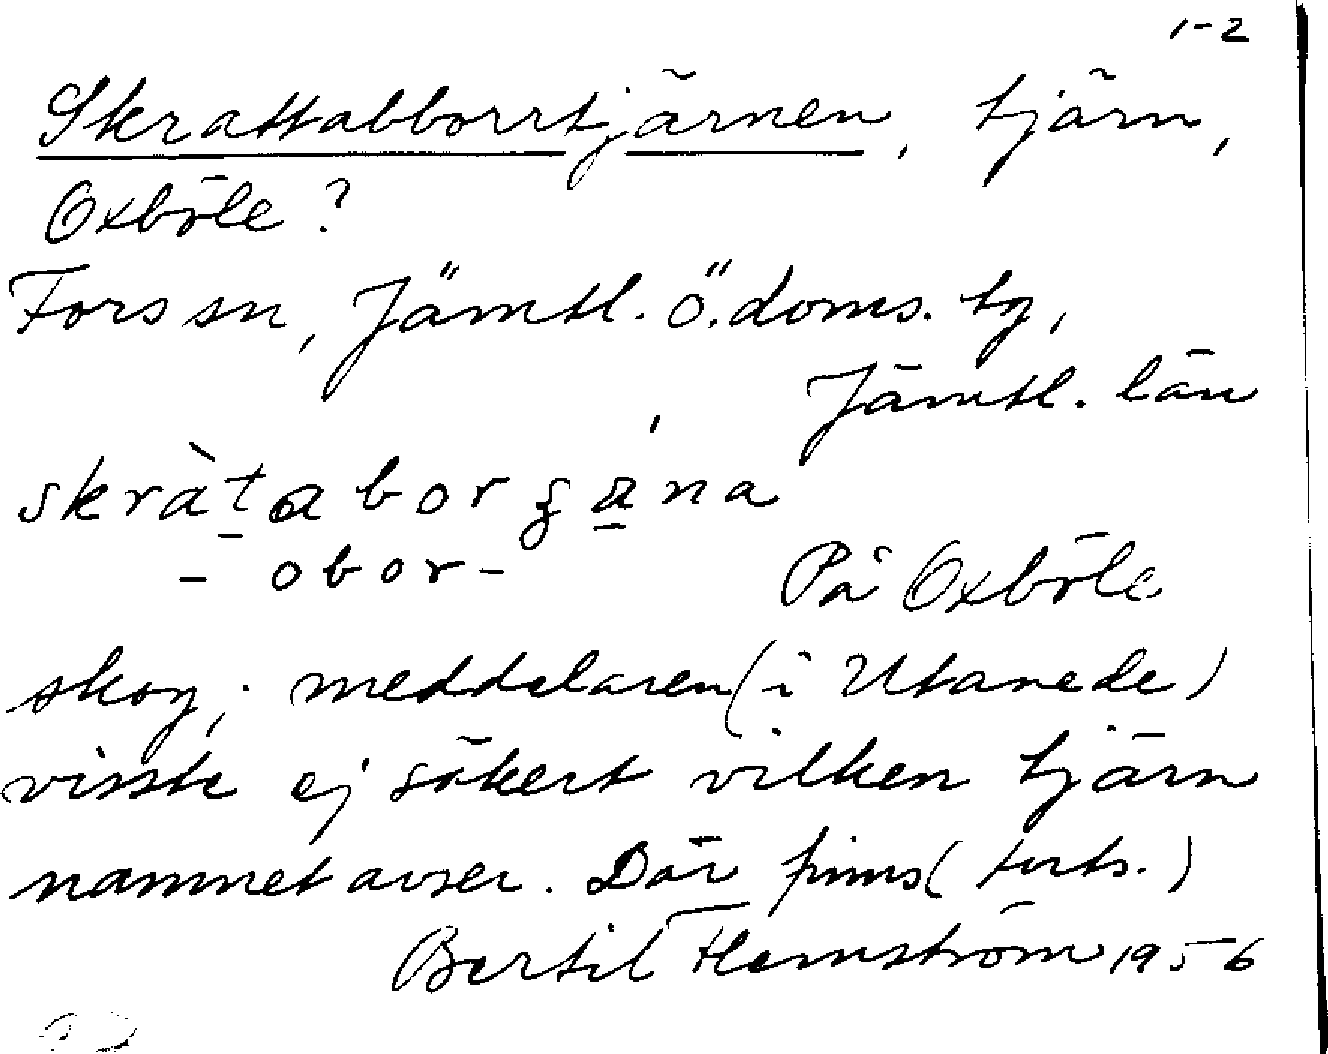 1-2
Skrattabborrtjärnen, tjärn,
Oxböle?
Fors sn, Jämtl. ö. doms. tg,
Jämtl. län
skràtabor
- obor-
På Oxböle
skog; meddelaren (i Utanede)
visste ej säkert vilken tjärn
namnet avser. Där finns (forts.)
Bertil Flemström 1956